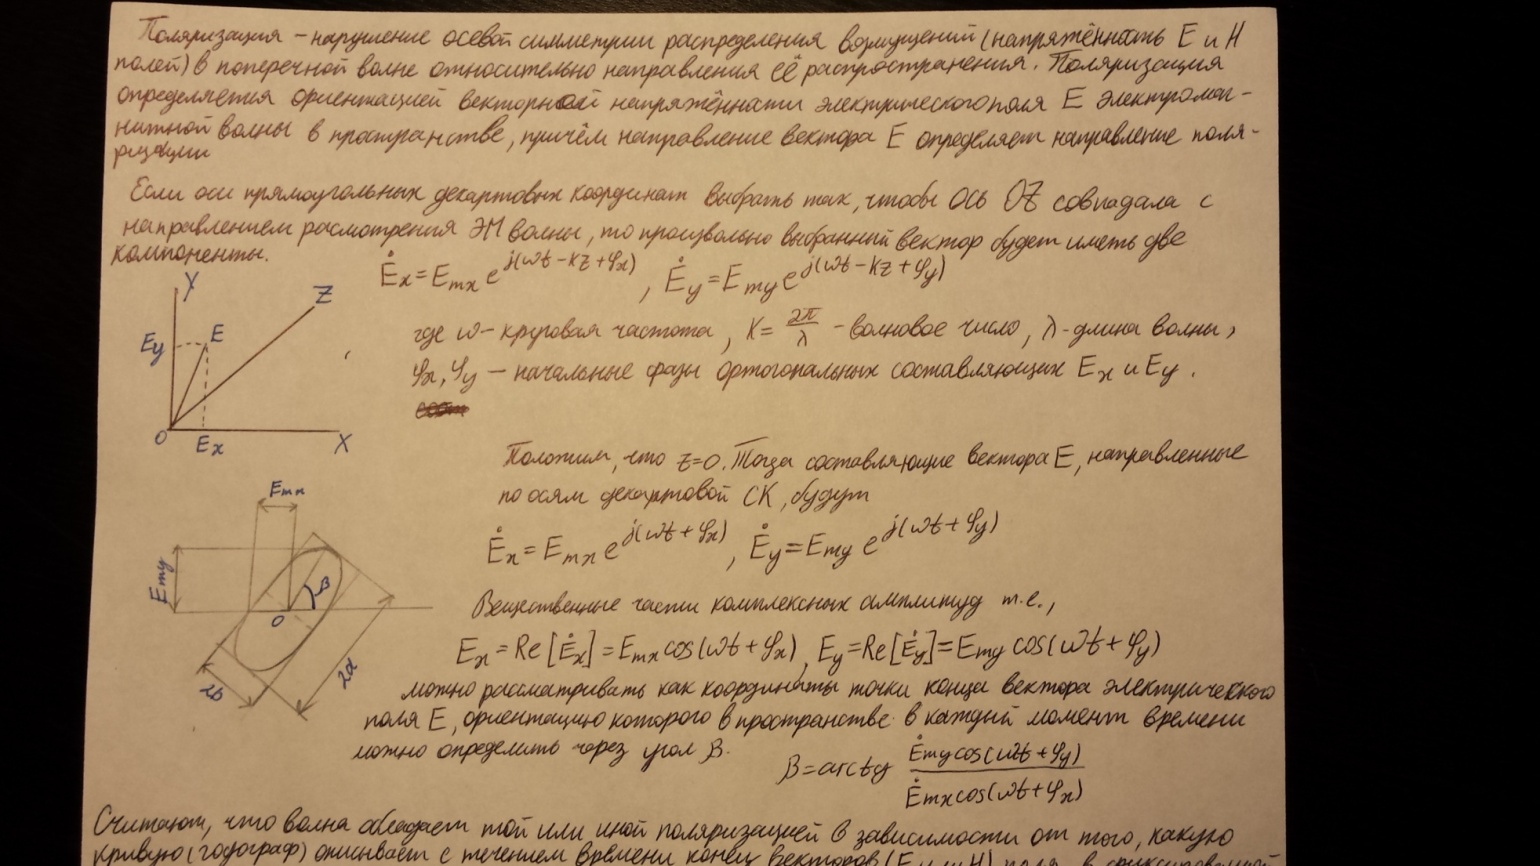 Поляризация – нарушение осевой симметрии распределения возмущений (напряжённость E и H
полей) в поперечной волне относительно направления её распространения. Поляризация
определяется ориентацией векторной напряжённости электрического поля E электромаг-
нитной волны в пространстве, причём направление вектора E определяет направление поля-
ризации
Если оси прямоугольных декартовых координат выбрать так, чтобы ось OZ совпадала с
направлением расмотрения ЭМ волны, то произвольно выбранный вектор будет иметь две
компоненты.
Ėx = Emx e^j(ωt – kz + φx) , Ėy = Emy e^j(ωt – kz + φy)
Y
Z
Ey
E
O
Ex
X
где ω – круговая частота, K = 2π/λ – волновое число, λ – длина волны,
φx, φy – начальные фазы ортогональных составляющих Ex и Ey.
Положим, что z=0. Тогда составляющие вектора E, направленные
по осям декартовой СК, будут
Ėx = Emx e^j(ωt + φx) , Ėy = Emy e^j(ωt + φy)
Emx
Emy
β
O
2b
2a
Вещественные части комплексных амплитуд т.е.,
Ex = Re[Ėx] = Emx cos(ωt + φx), Ey = Re[Ėy] = Emy cos(ωt + φy)
можно рассматривать как координаты точки конца вектора электрического
поля E, ориентацию которого в пространстве в каждый момент времени
можно определить через угол β.
β = arctg Ėmy cos(ωt + φy) / Ėmx cos(ωt + φx)
Считают, что волна обладает той или иной поляризацией в зависимости от того, какую
кривую (годограф) описывает с течением времени конец векторов (E или H) поля в фиксированной